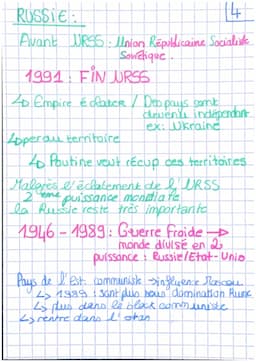 RUSSIE :
4
Avant URSS : Union Républicaine Socialiste
Soviétique.
1991 : FIN URSS
↳ Empire éclater / Des pays sont
devenu indépendant
ex : Ukraine
↳ perdu territoire
↳ Poutine veut récup ces territoires
Malgrès l'éclatement de l'URSS
2ème puissance mondiale
la Russie reste très importante
1946 - 1989 : Guerre Froide →
monde divisé en 2
puissance : Russie/Etat-Unis
Pays de l'Est communiste → influence Moscou
↳ 1989 : sont plus sous domination Russe
↳ plus dans le block communiste
↳ rentre dans l'otan